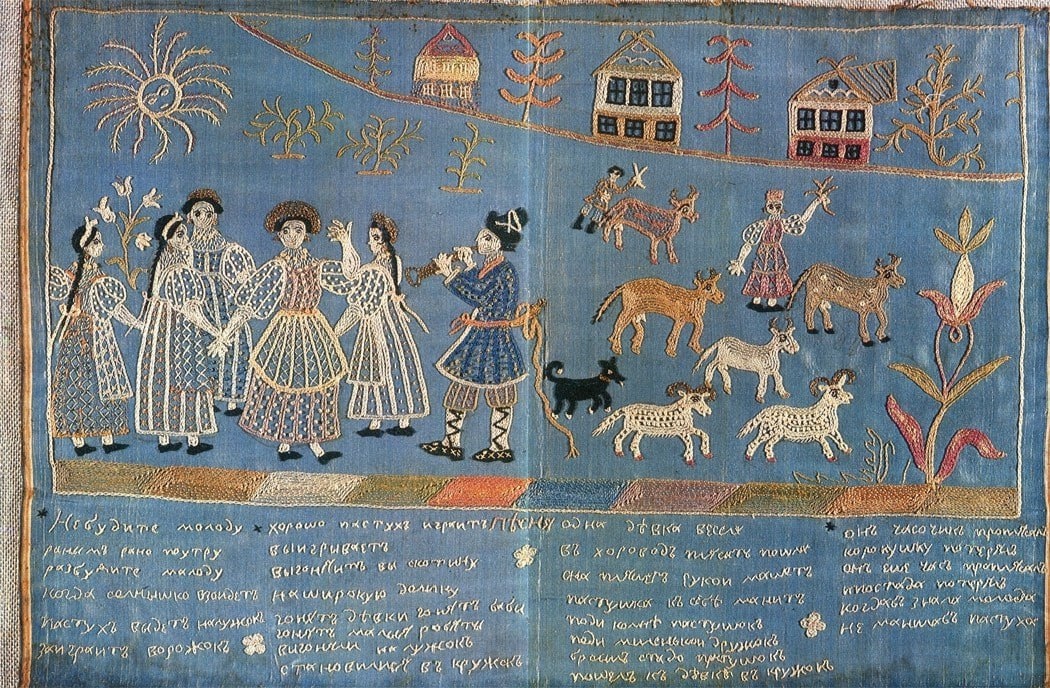 Небудите молоду
ранимъ рано поутру
разбудите маладу
когда солнышко взойдетъ
пастухъ выдетъ налужокъ
заиграитъ ворожокъ
хорошо пастухъ играитъ
выигрываетъ
выгонити вы скотину
наширокую долину
гонютъ дѣвки гонютъ бабы
гонютъ малыя робяты
выгонили на лужокъ
становились въ кружокъ
ПѢСНЯ
одна дѣвка весела
въ хороводъ плясать пошла
она пляшетъ рукой машетъ
пастушка къ себѣ манитъ
поди комнѣ пастушокъ
поди миленькой дружокъ
бросилъ стадо пастушокъ
пошелъ къ дѣвкам въ кружокъ
онъ часочикъ проплясалъ
коровушку потерялъ
онъ еще часъ проплясалъ
потерялъ
когдабъ знала молода
не манилабъ пастуха